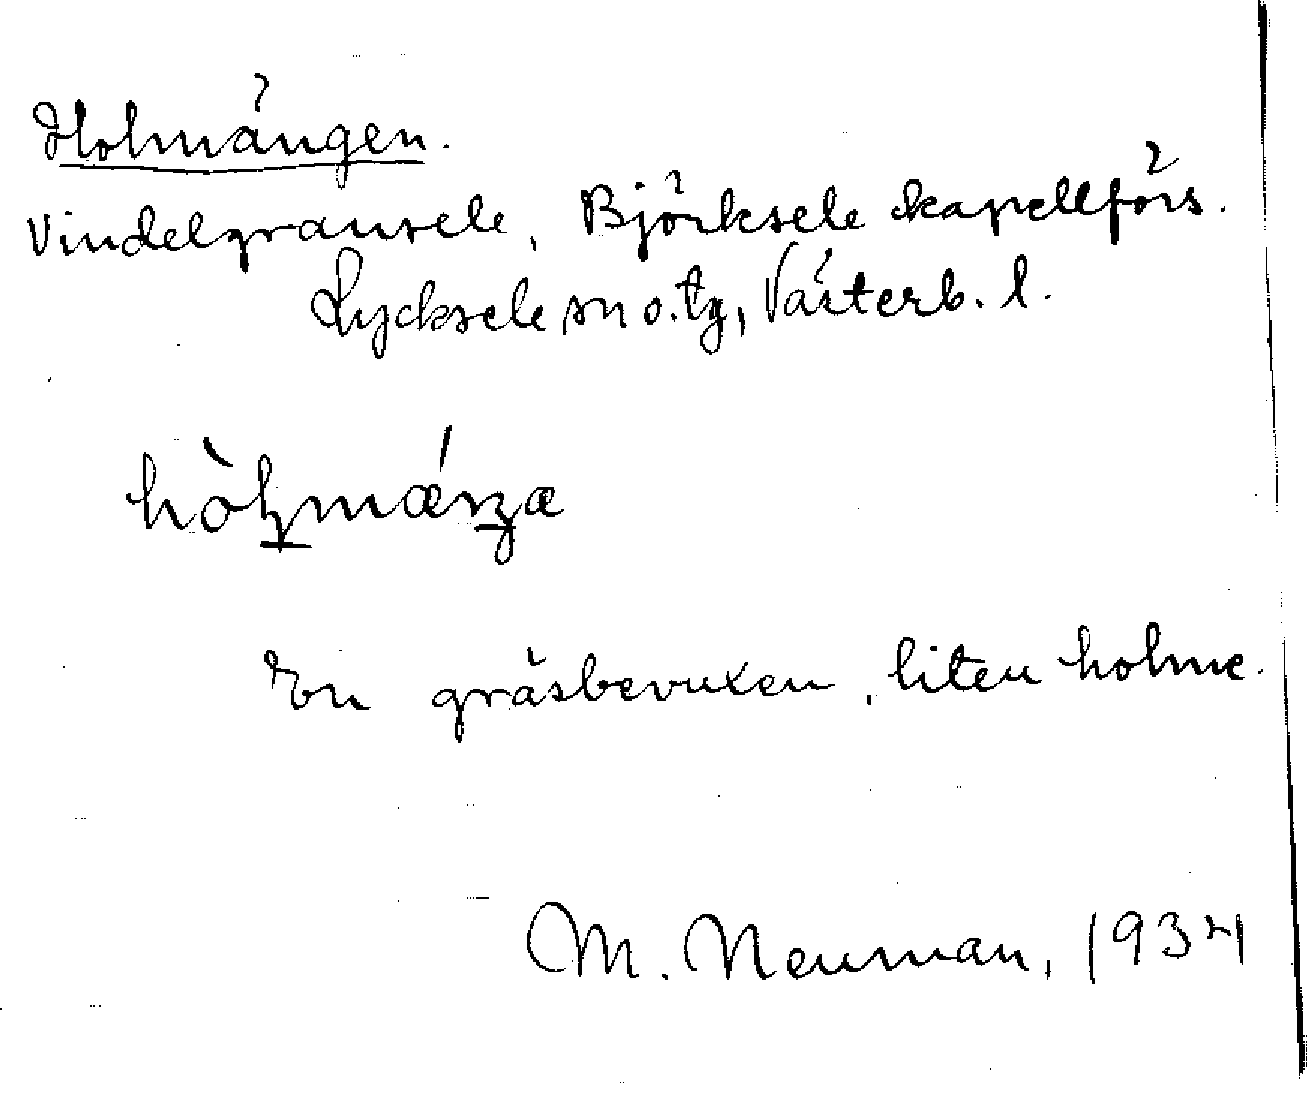 Holmängen.
Vindelgransele, Björksele kapellförs.
Lycksele sn o. tg, Västerb. l.
En gräsbevuxen, liten holme.
M. Neuman, 1934